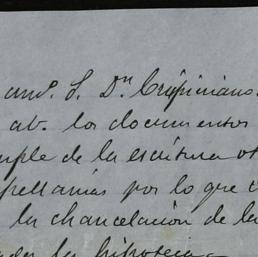 amo. S. Dn. Crispiniano
ab. los documentos
mple de la escritura ot
pellanias por lo que
la chancelación de la
la hipoteca